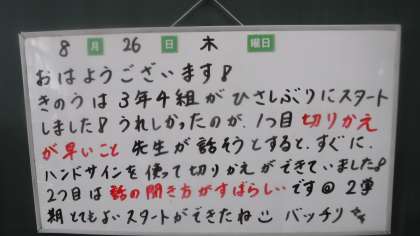 8月26日木曜日
おはようございます!
きのうは3年4組がひさしぶりにスタート
しました!うれしかったのが、1つ目切りかえ
が早いこと 先生が話そうとすると、すぐに、
ハンドサインを使って切りかえができていました!
2つ目は話の聞き方がすばらしいです@ 2学
期とてもよいスタートができたね バッチリ